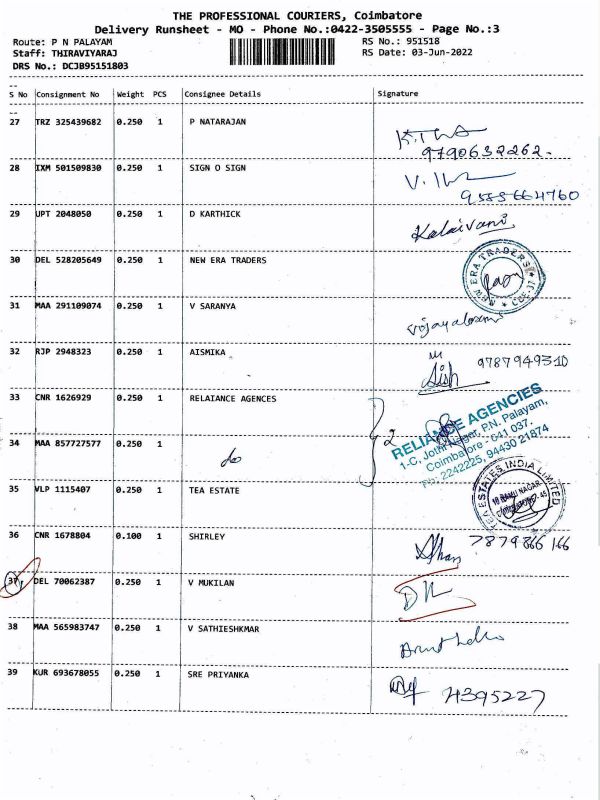 THE PROFESSIONAL COURIERS, Coimbatore
Delivery Runsheet - MO - Phone No.:0422-3505555 - Page No.:3
Route: P N PALAYAM RS No.: 951518
Staff: THIRAVIYARAJ RS Date: 03-Jun-2022
DRS No.: DCJB95151803
S No Consignment No Weight PCS Consignee Details Signature
27 TRZ 325439682 0.250 1 P NATARAJAN
9790632262.
28 IXM 501509830 0.250 1 SIGN O SIGN
29 UPT 2048050 0.250 1 D KARTHICK Kalaivani
30 DEL 528205649 0.250 1 NEW ERA TRADERS
NEW ERA TRADERS
31 MAA 291109074 0.250 1 V SARANYA
32 RJP 2948323 0.250 1 AISMIKA 9787949310
33 CNR 1626929 0.250 1 RELAIANCE AGENCES
34 MAA 857727577 0.250 1 do
} 2
RELIANCE AGENCIES
1-C, Jothi Nagar, P.N. Palayam,
Coimbatore - 641 037.
Ph: 2242225, 94430 21874
35 VLP 1115407 0.250 1 TEA ESTATE
TEA ESTATES INDIA LIMITED
36 CNR 1678804 0.100 1 SHIRLEY 7879866166
37 DEL 70062387 0.250 1 V MUKILAN
38 MAA 565983747 0.250 1 V SATHIESHKMAR
39 KUR 693678055 0.250 1 SRE PRIYANKA